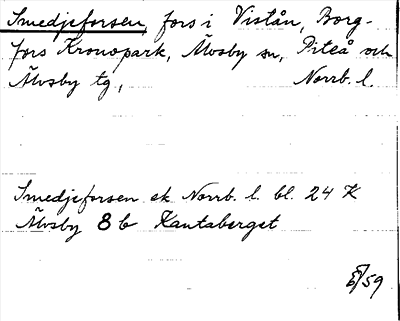 Smedjeforsen, fors i Vistån, Borg-
fors Kronopark, Älvsby sn, Piteå och
Älvsby tg, Norrb. l.
Smedjeforsen ek Norrb. l. bl. 24 K
Älvsby 8 b Kantaberget
/59